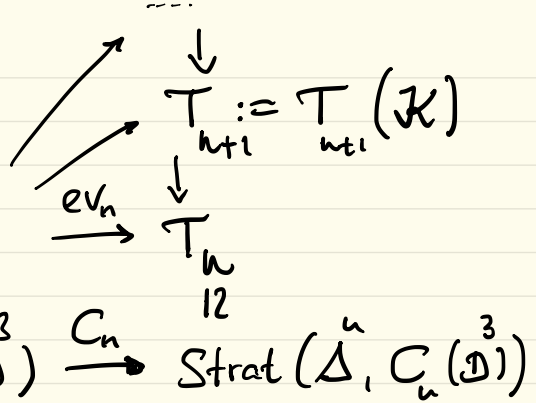 T_{n+1} := T_{n+1}(K)
ev_n
T_n
12
3) C_n → Strat(Δ^n, C_n(D^3))